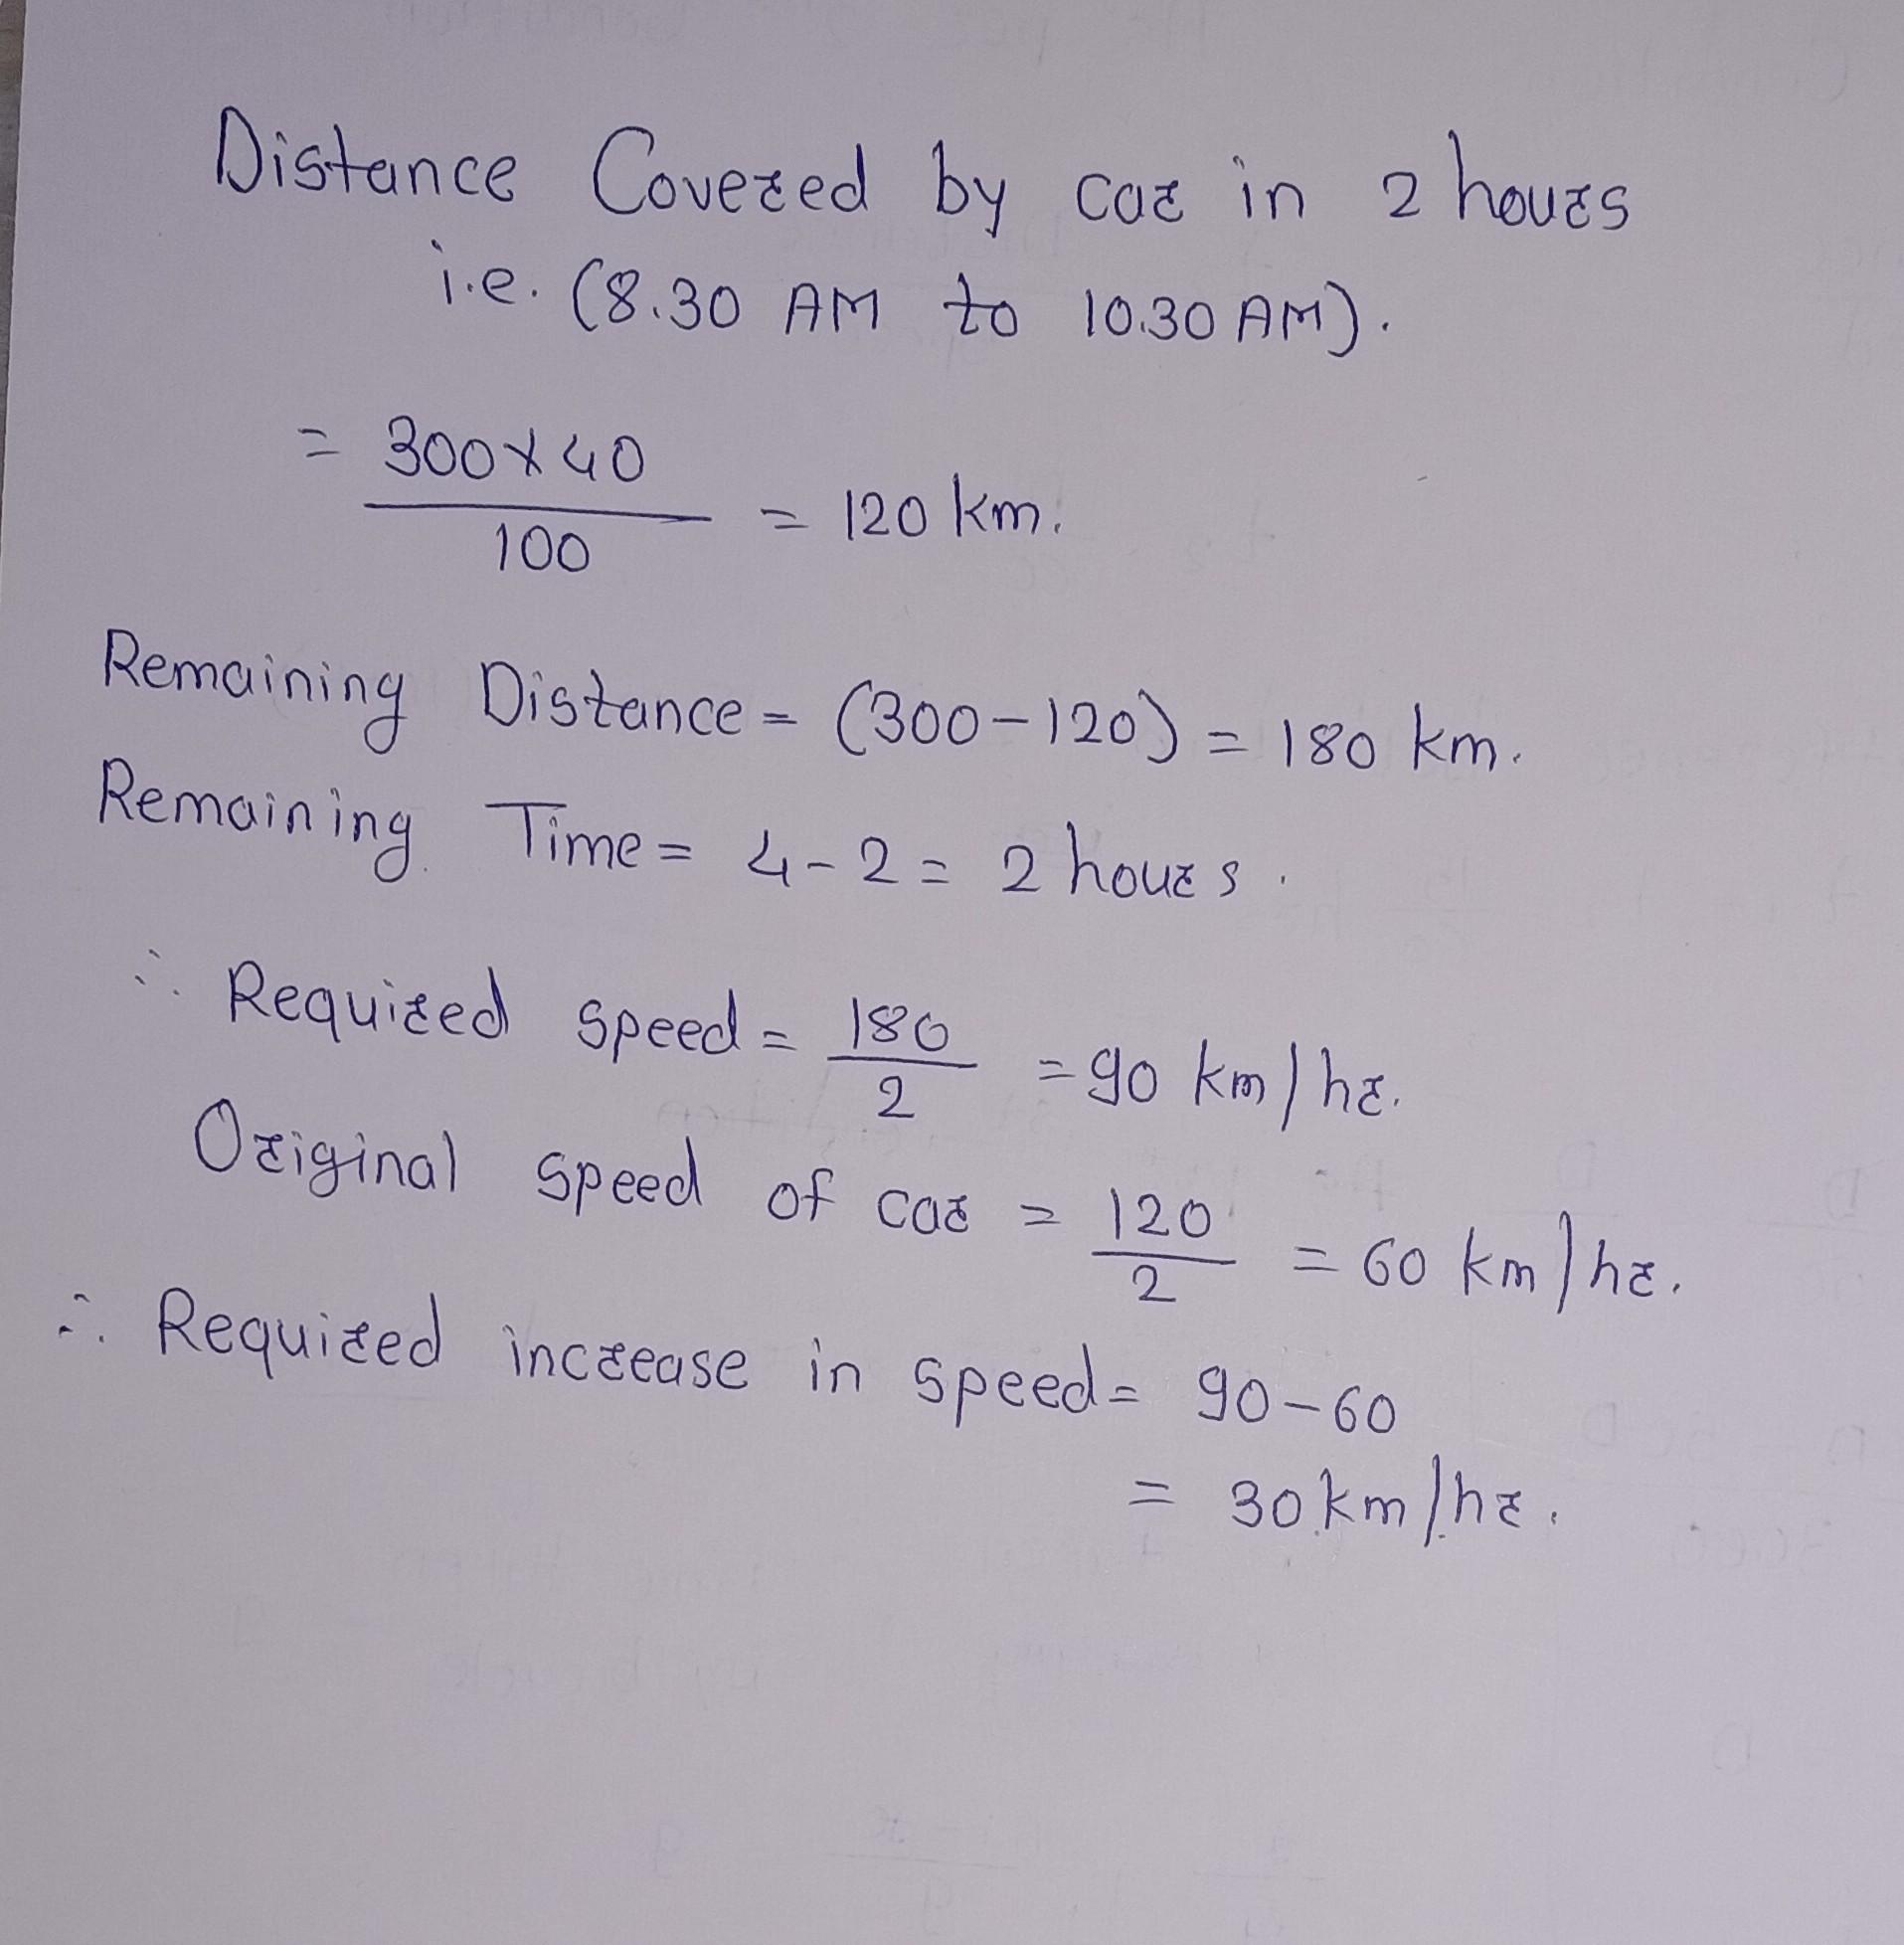 Distance Covered by car in 2 hours
i.e. (8.30 AM to 10.30 AM).
= 300×40 / 100 = 120 km.
Remaining Distance = (300-120) = 180 km.
Remaining Time = 4-2 = 2 hours.
∴ Required speed = 180 / 2 = 90 km/hr.
Original speed of car = 120 / 2 = 60 km/hr.
∴ Required increase in speed = 90-60
= 30 km/hr.